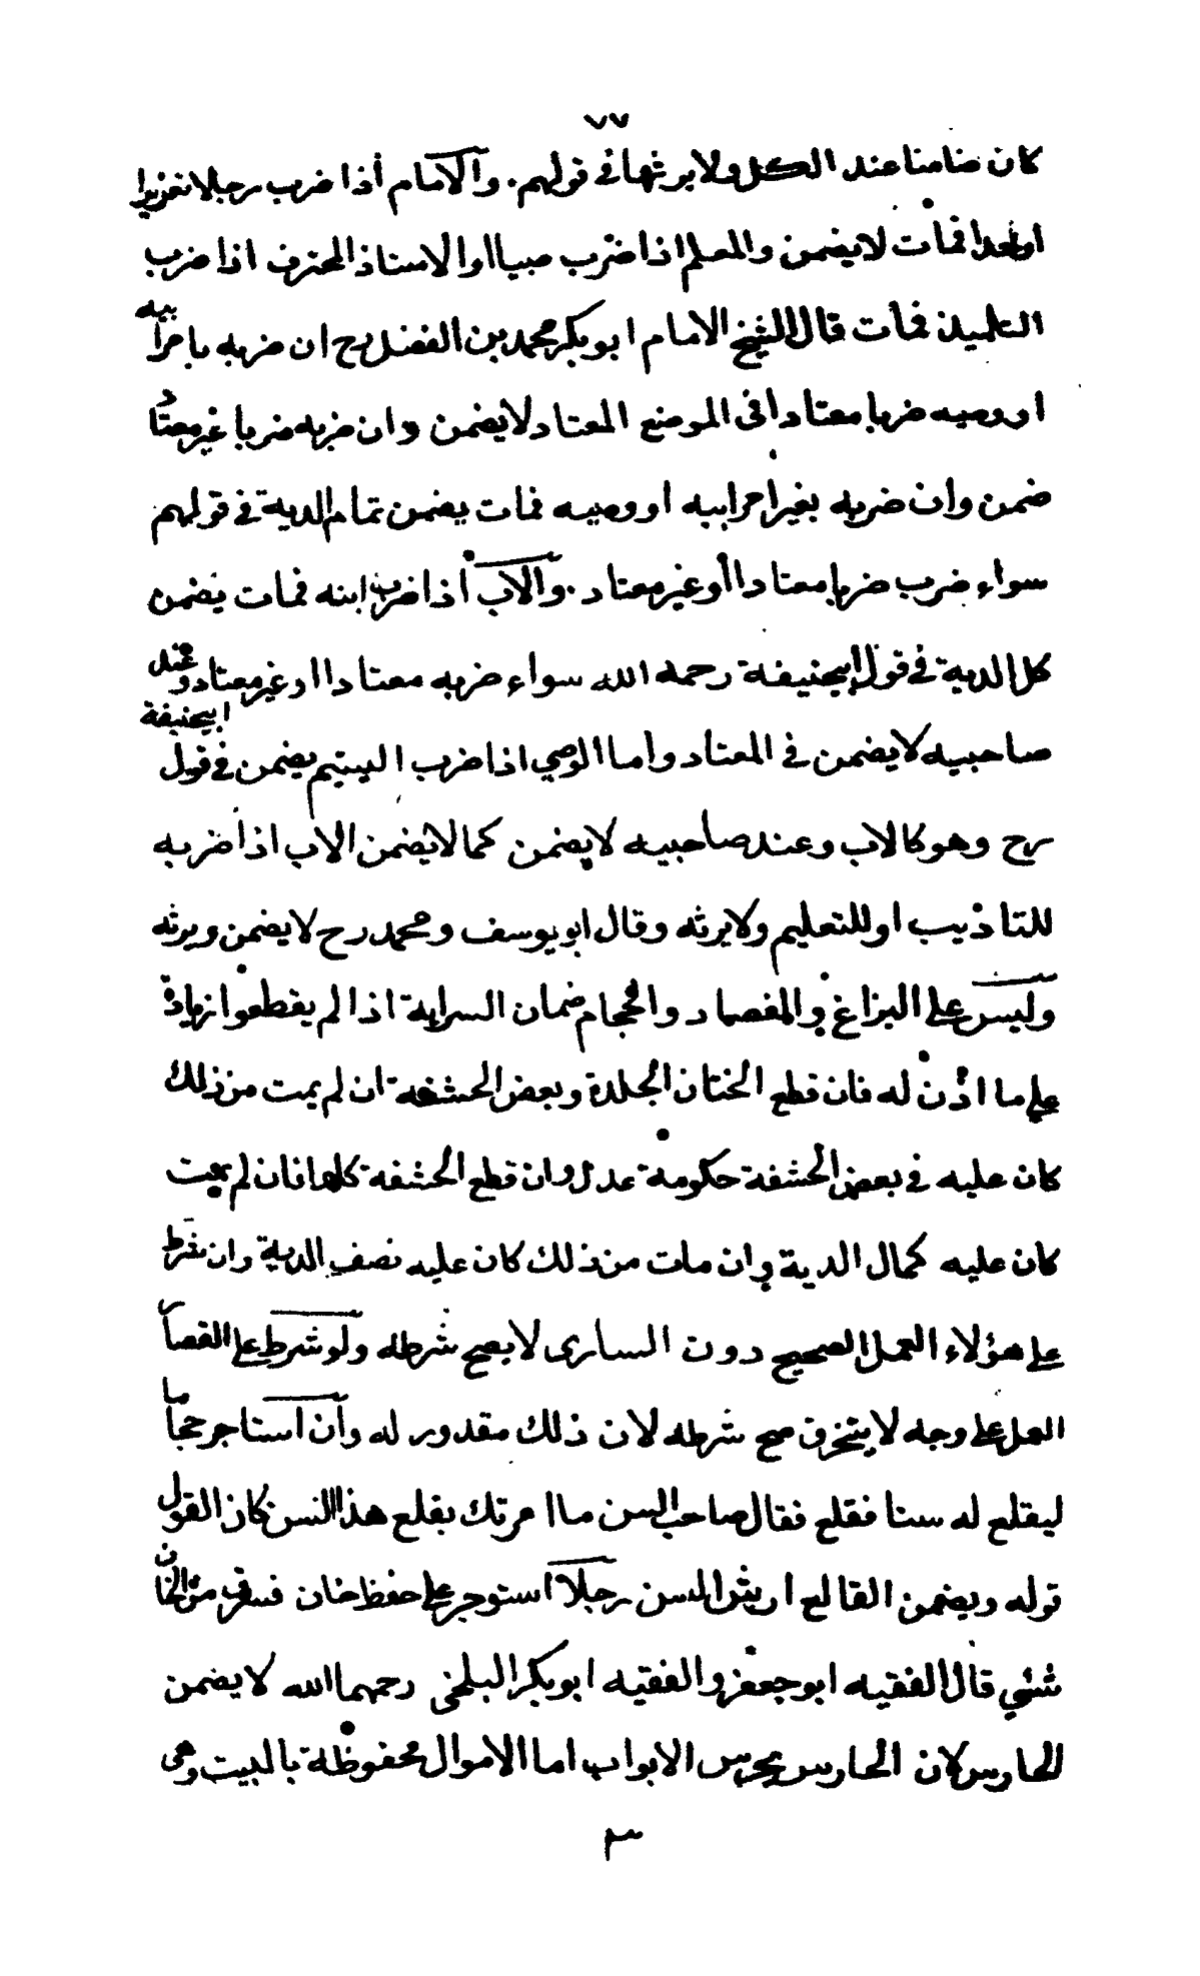 ٧٧
كان ضامنا عند الكل ولا يرثها في قولهم. والامام اذا ضرب رجلا تعزيرا
او حدا فمات لا يضمن والمعلم اذا ضرب صبيا او الاستاذ المحترف اذا ضرب
التلميذ فمات قال الشيخ الامام ابو بكر محمد بن الفضل رح ان ضربه بامر ابيه
او وصيه ضربا معتادا في الموضع المعتاد لا يضمن وان ضربه ضربا غير معتاد
ضمن وان ضربه بغير امر ابيه او وصيه فمات يضمن تمام الدية في قولهم
سواء ضرب ضربا معتادا او غير معتاد. والاب اذا ضرب ابنه فمات يضمن
كل الدية في قول ابيحنيفة رحمه الله سواء ضربه معتادا او غير معتاد وعند
صاحبيه لا يضمن في المعتاد واما الوصي اذا ضرب اليتيم يضمن في قول ابيحنيفة
رح وهو كالاب وعند صاحبيه لا يضمن كما لا يضمن الاب اذا ضربه
للتاديب او للتعليم ولا يرثه وقال ابو يوسف ومحمد رح لا يضمن ويرثه
وليس على البزاغ والفصاد والحجام ضمان السراية اذا لم يقطعوا زيادة
على ما اذن له فان قطع الختان الجلدة وبعض الحشفة ان لم يمت من ذلك
كان عليه في بعض الحشفة حكومة عدل وان قطع الحشفة كلها فان لم يمت
كان عليه كمال الدية وان مات من ذلك كان عليه نصف الدية وان شرط
على هؤلاء العمل الصحيح دون الساري لا يصح شرطه ولو شرط على القصار
العمل على وجه لا يتخرق صح شرطه لان ذلك مقدور له وان استاجر حجاما
ليقلع له سنا فقلع فقال صاحب السن ما امرتك بقلع هذا السن كان القول
قوله ويضمن القالع ارش السن رجلا استوجر على حفظ خان فسرق من الخان
شئي قال الفقيه ابو جعفر والفقيه ابو بكر البلخي رحمهما الله لا يضمن
الحارس لان الحارس يحرس الابواب اما الاموال محفوظة بالبيت وهي